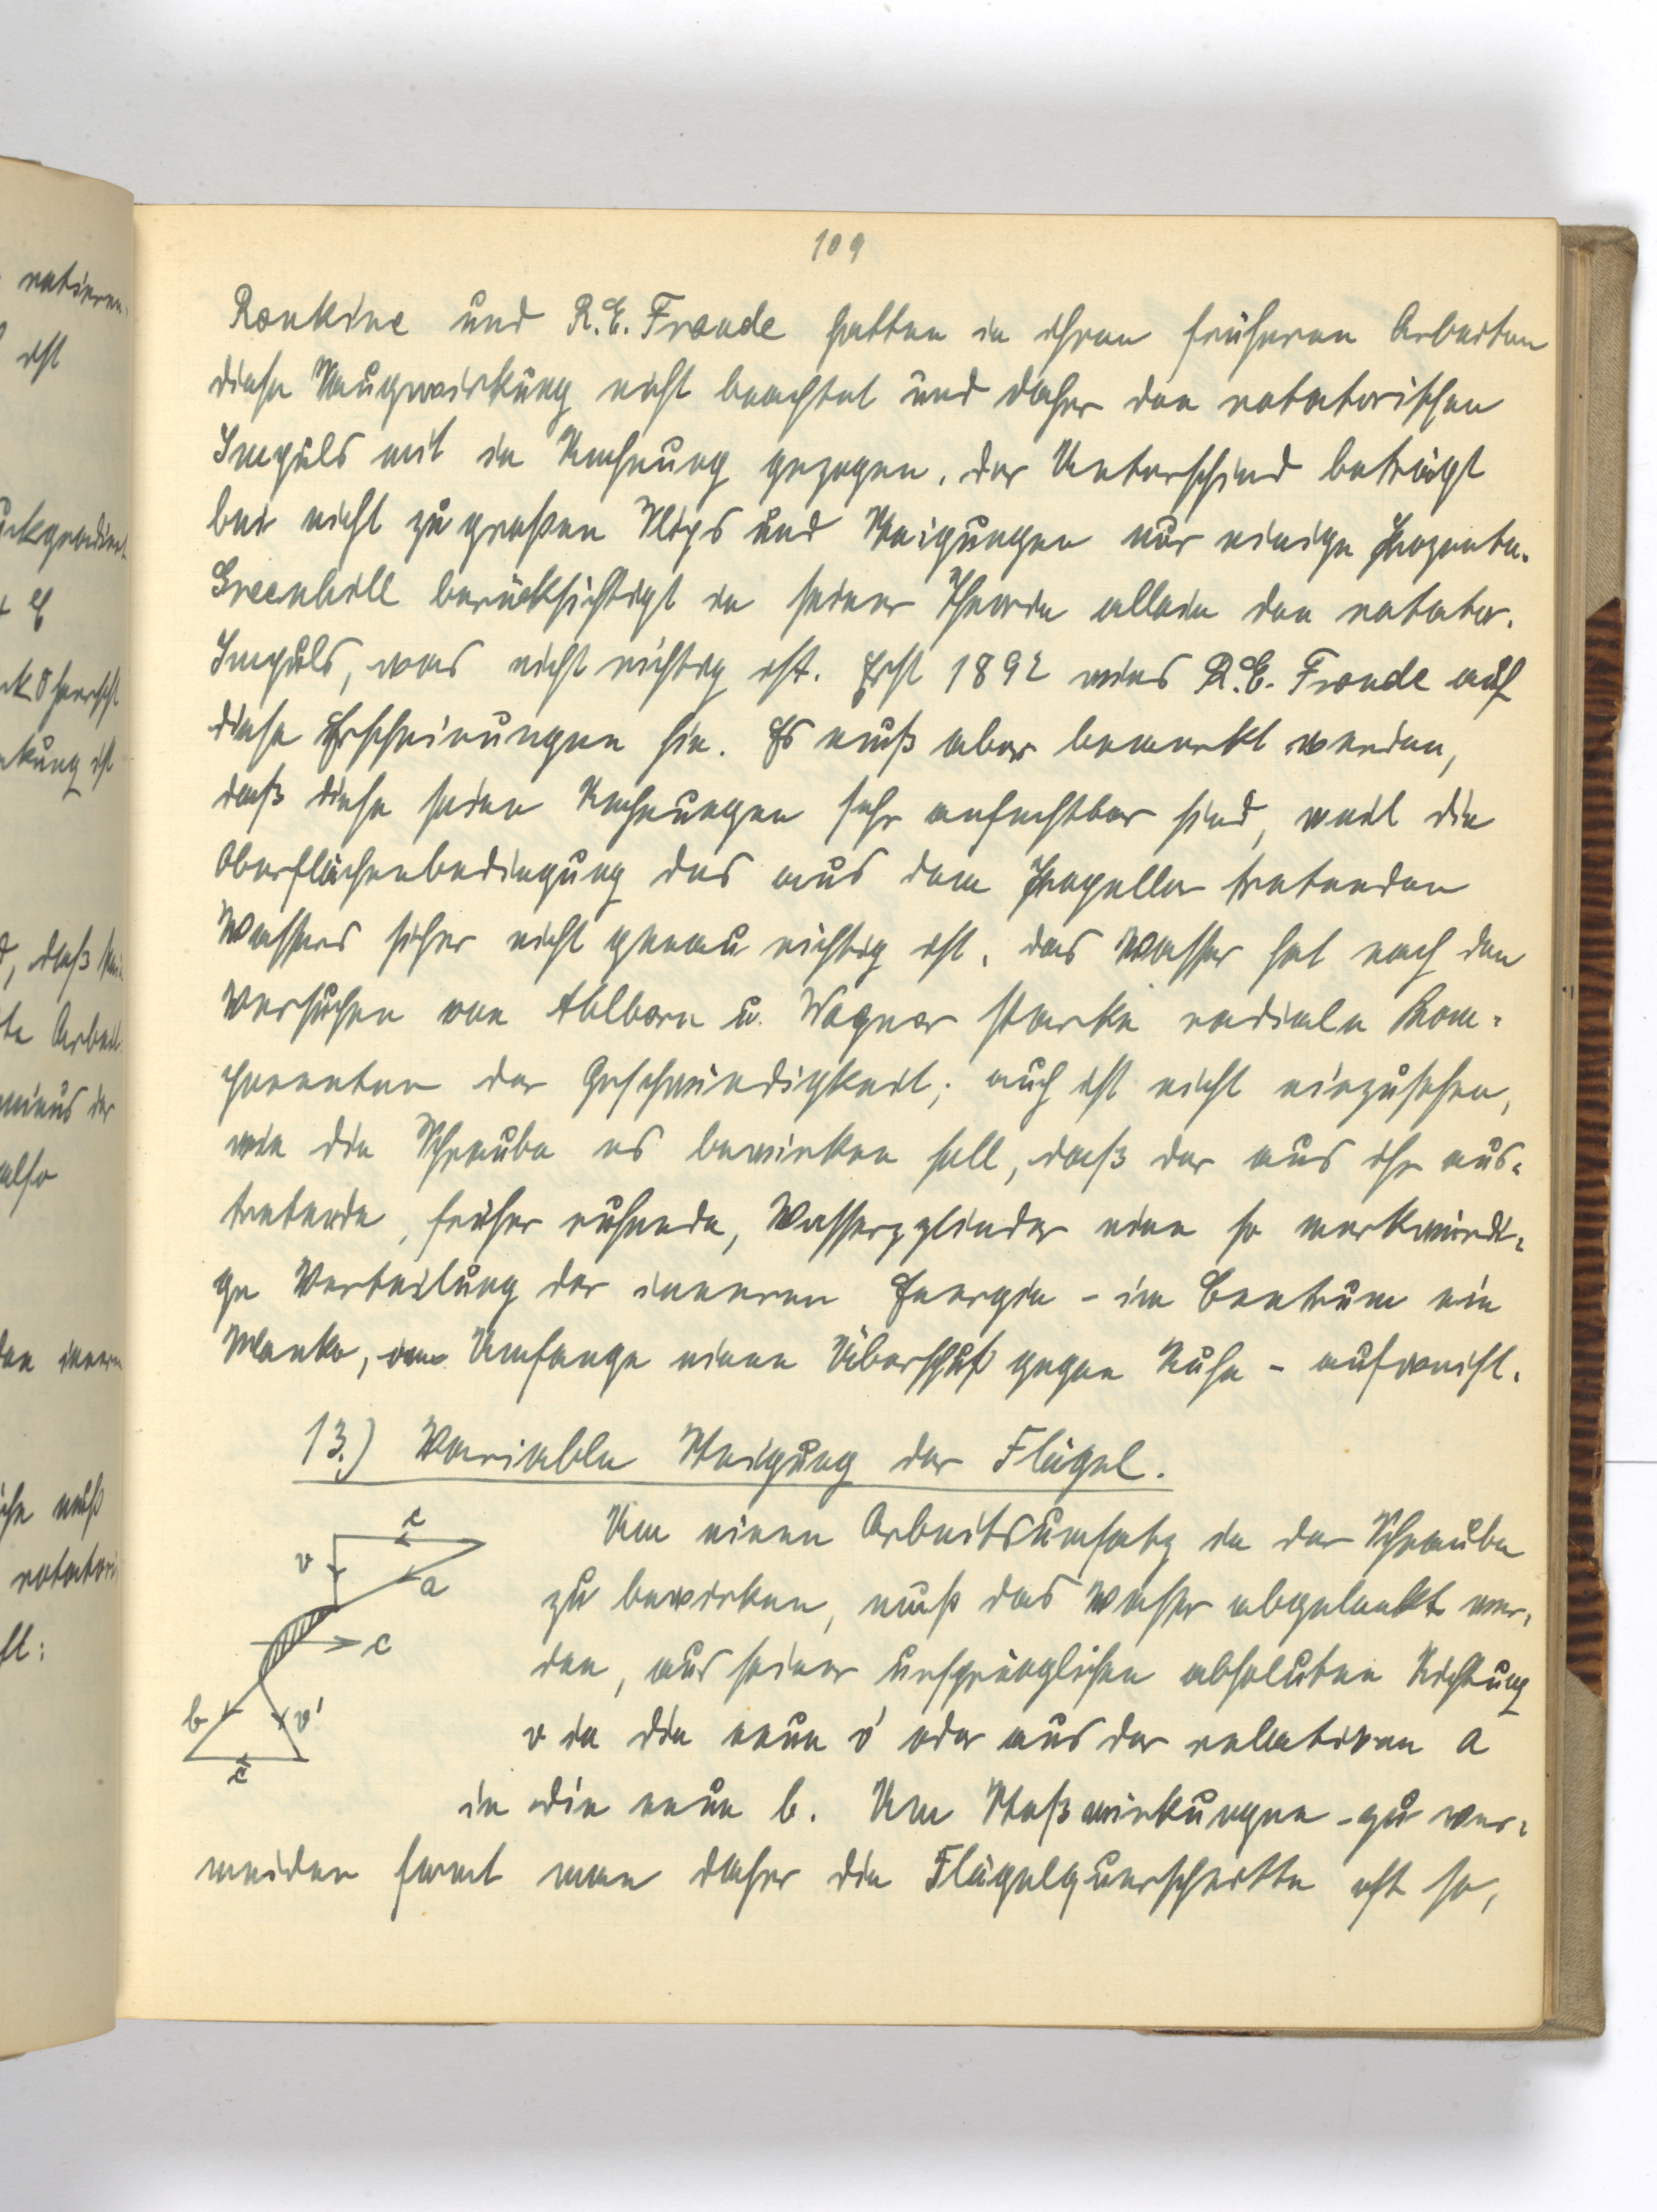 109
Rankine und R.E. Froude hatten in ihren früheren Arbeiten
diese Saugwirkung nicht beachtet und daher den rotatorischen
Impuls mit in Rechnung gezogen. Der Unterschied beträgt
bei nicht zu großen Slips und Steigungen nur einige Prozente.
Greenhill berücksichtigt in seiner Theorie allein den rotator.
Impuls, was nicht richtig ist. Erst 1892 wies R.E. Froude auf
diese Erscheinungen hin. Es muß aber bemerkt werden,
daß diese seine Rechnungen sehr anfechtbar sind, weil die
Oberflächenbedingung des aus dem Propeller tretenden
Wassers sicher nicht genau richtig ist. Das Wasser hat nach den
Versuchen von Ahlborn u. Wagner starke radiale Kom-
ponenten der Geschwindigkeit; auch ist nicht einzusehen,
wie die Schraube es bewirken soll, daß der aus ihr aus-
tretende, früher ruhende, Wasserzylinder eine so merkwürdi-
ge Verteilung der inneren Energie - im Centrum ein
Manko, am Umfange einen Überschuß gegen Ruhe - aufweist.
13.) Variable Steigung der Flügel.
Um einen Arbeitsumsatz in der Schraube
zu bewirken, muß das Wasser abgelenkt wer-
den, aus seiner ursprünglichen absoluten Richtung
v in die neue v' oder aus der relativen a
in die neue b. Um Stoßwirkungen zu ver-
meiden formt man daher die Flügelquerschnitte oft so,
c
v
a
c
b
v'
c
rotieren-
ist
+ E
d, daß
te Arbeit
minus der
also
den innern
muß
rotatori